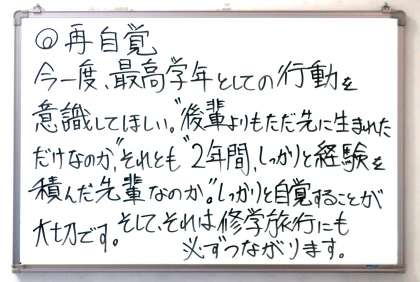 ◎再自覚
今一度、最高学年としての行動を
意識してほしい。"後輩よりもただ先に生まれた
だけなのか"、それとも"2年間、しっかりと経験を
積んだ先輩なのか。"しっかりと自覚することが
大切です。そして、それは修学旅行にも
必ずつながります。